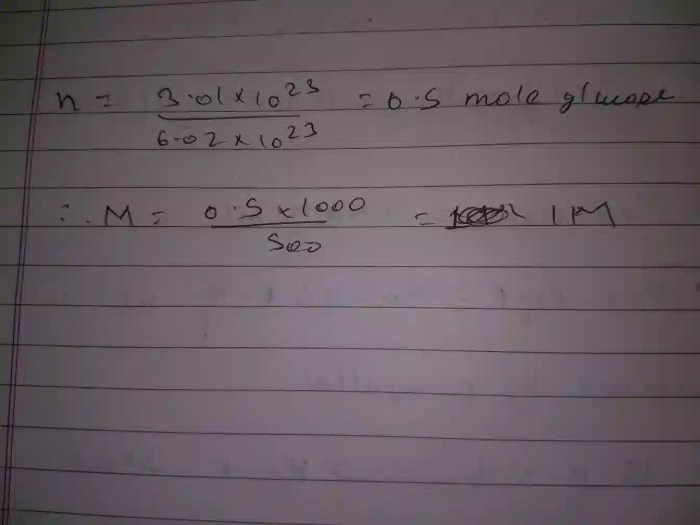 n = 3.01×10^23 / 6.02×10^23 = 0.5 mole glucose
∴ M = 0.5×1000 / 500 = 1M